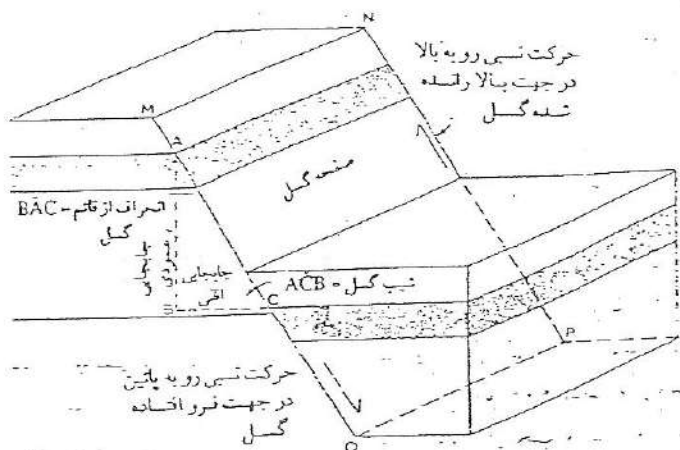 N
حرکت نسبی رو به بالا
در جهت بالا رانده
شده گسل
M
A
صفحه گسل
انحراف از قائم = BAC
گسل
جابجایی
عمودی
جابجایی
افقی
شیب گسل = AĈB
C
B
P
حرکت نسبی رو به پائین
در جهت فرو افتاده
گسل
O